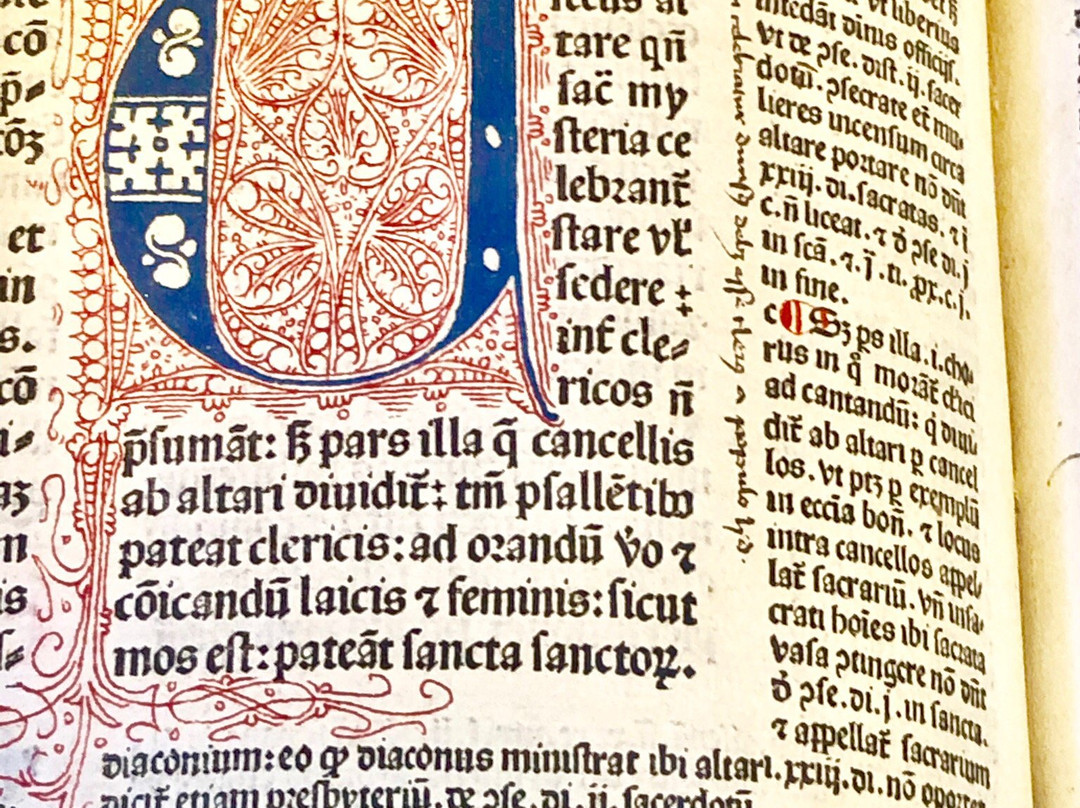 cō
p̄⸗
cōꝫ
et
in
s.
cō
i⸗
aꝫ
n
is
tare qn̄
ſac̄ my
ſteria ce
lebꝛant̄
ſtare vl̄
ſedere :
int̄ cle⸗
ricos n̄
p̄ſumāt: ẜꝫ pars illa q̄ cancellis
ab altari diuidit̄: tm̄ pſallētibꝰ
pateat clericis: ad oꝛandū v̊o ⁊
cōicandū laicis ⁊ feminis: ſicut
mos eſt: pateāt ſancta ſanctoꝝ.
diaconium: eo ꝙ diaconus miniſtrat ibi altari. xxiij. di. nō oportet
dicit̄ etiam pꝛeſbyteriū. de ↄſe. di. ij. ſacerdotū
vt liberius
intēdāt diuis officijs.
vt de ↄſe. diſt. ij. ſacer
dotū. ↄſecrate et̄ mu⸗
lieres incenſum circa
altare poꝛtare nō dn̄t
xxiij. di. ſacratas. ⁊ ī
c. n̄ liceat. ⁊ d̄ ↄſe di. j
in ſcā. ⁊. j. ti. px. c. j.
in fine.
c Sꝫ ps illa. i. cho⸗
rus in q̄ moꝛāt̄ clici
ad cantandū: q̄ diui
dit̄ ab altari ꝑ cancel
los. vt ptꝫ ꝑ exemplū
in eccīa bon̄. ⁊ locus
intra cancellos appel
lat̄ ſacrariū. vn̄ inſa⸗
crati hoīes ibi ſacrata
vaſa ↄtingere nō dn̄t
d̄ ↄſe. di. j. in ſancta.
⁊ appellat̄ ſacrarium